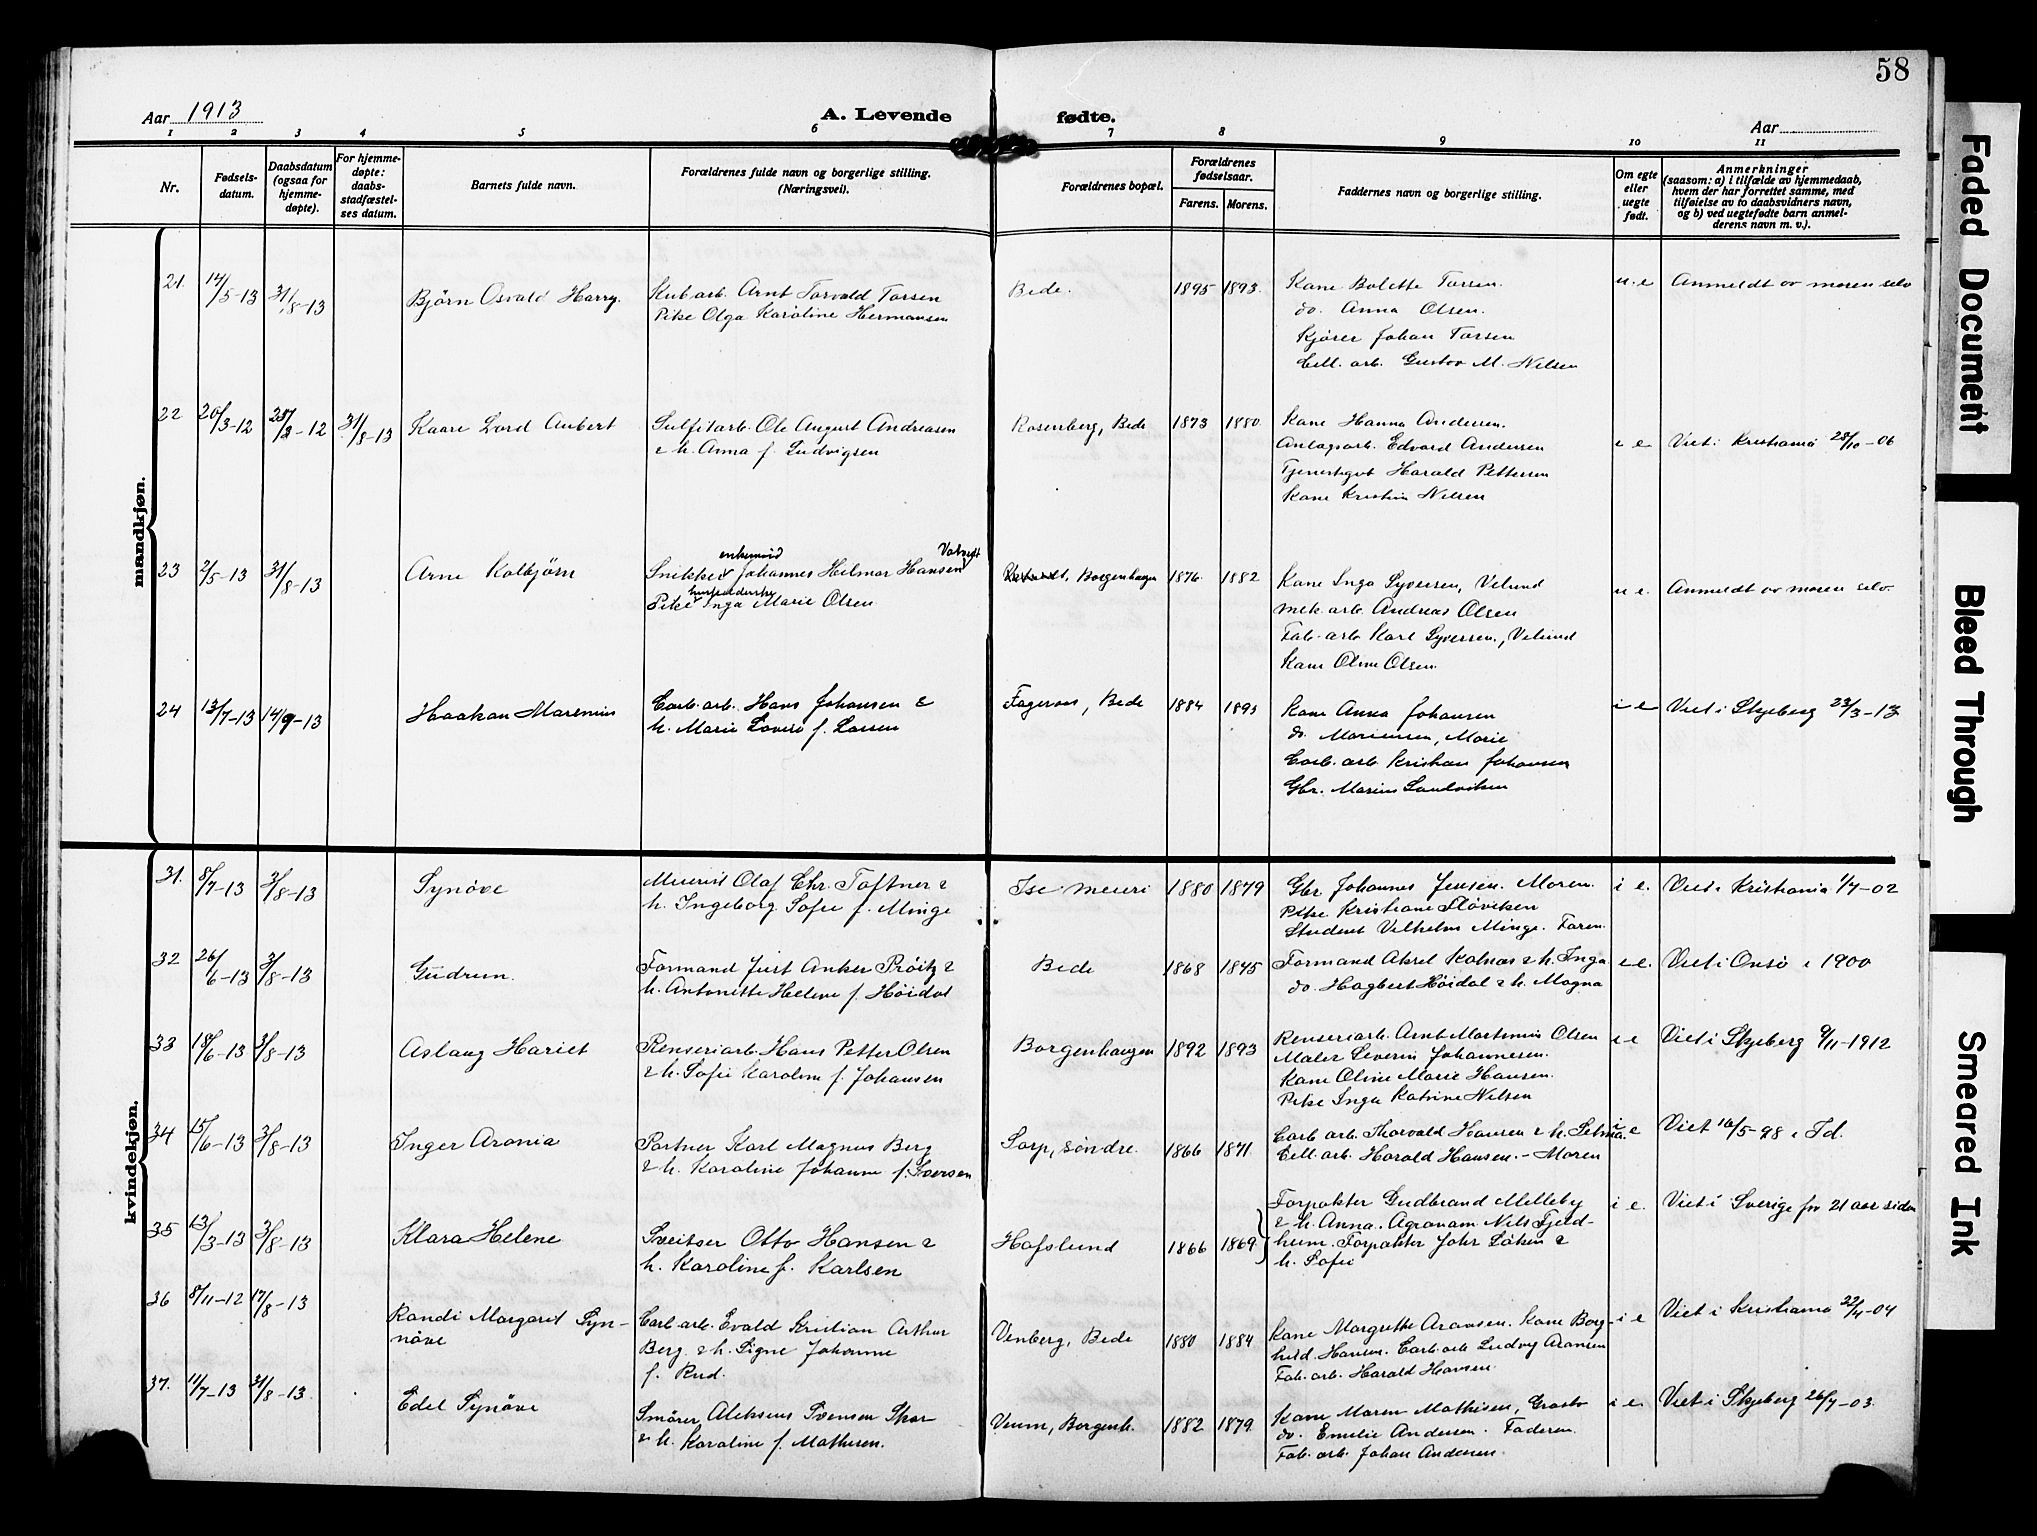 58
Aar 1913
A. Levende fødte.
Aar
1 2 3 4 5 6 7 8 9 10 11
Nr.
Fødsels-
datum.
Daabsdatum
(ogsaa for
hjemme-
døpte).
For hjemme-
døpte:
daabs-
stadfæstel-
ses datum.
Barnets fulde navn.
Forældrenes fulde navn og borgerlige stilling.
(Næringsvei).
Forældrenes bopæl.
Forældrenes
fødselsaar.
Farens. Morens.
Faddernes navn og borgerlige stilling.
Om egte
eller
uegte
født.
Anmerkninger
(saasom: a) i tilfælde av hjemmedaab,
hvem der har forrettet samme, med
tilføielse av to daabsvidners navn,
og b) ved uegtefødte barn anmel-
derens navn m. v.).
mandkjøn.
21. 14/5-13 31/8-13 Bjørn Osvald Harry.
Kub arb. Arnt Torvald Torsen
Pike Olga Karoline Hermansen
Bede. 1895 1893.
Kone Bolette Torsen.
do. Anna Olsen.
Kjører Johan Torsen
Cell. arb. Gustav M. Nilsen
u. e Anmeldt av moren selv
22 20/3-12 31/8-13 Kaare Lord Aubert
Sulfitarb. Ole August Andreasen
& h. Anna f. Ludvigsen
Rosenberg, Bede 1873 1880.
Kone Hanna Andersen.
Anlagsarb. Edvard Andersen
Tjenestegut Harald Pettersen
Kone Kristin Nilsen
i e Viet i Kristiania 28/10-06
23 2/5-13 31/8-13 Arne Kolbjørn
enkemand
Snikker Johannes Hilmar Hansen
Pike Inga Marie Olsen
Borgenhaugen 1876. 1882
Kone Inga Syversen, Velund
mek. arb. Andreas Olsen
Fab. arb. Karl Syversen, Velund
Kone Oline Olsen.
u e. Anmeldt av moren selv.
24 13/7-13 14/9-13 Haakon Marenius
Carb. arb. Hans Johansen &
h. Marie Lovise f. Larsen
Fageraas, Bede 1884 1893
Kone Anna Johansen
do. Mariensen, Marie
Carb. arb. Kristian Johansen
Gbr. Marius Sandviken
i e Viet i Skjeberg 23/3-13
kvindekjøn.
31. 8/7-13 3/8-13 Synøve
Meierist Olaf Chr. Toftner &
h. Ingeborg Sofie f. Minge
Ise meieri 1880 1879
Gbr Johannes Jensen. Moren.
Pike Kristiane Fløviken
Student Vilhelm Minge. Faren.
i e. Viet i Kristiania 1/7-02
32 26/6-13 3/8-13 Gudrun.
Formand Just Anker Prøitz &
h. Antonette Helene f. Høidal
Bede 1868 1875
Formand Aksel Kolnes & h. Inga
do. Hagbert Høidal & h. Magna
i e. Viet i Onsø i 1900
33 18/6-13 3/8-13 Aslaug Hariet
Renseriarb. Hans Petter Olsen
& h. Sofie Karoline f. Johansen
Borgenhaugen 1892 1893
Renseriarb. Arnt Martinius Olsen
Maler Severin Johannesen.
Kone Oline Marie Hansen.
Pike Inga Katrine Nilsen
i e Viet i Skjeberg 9/11-1912
34 15/6-13 3/8-13 Inger Aronia
Portner Karl Magnus Berg
& h. Karoline Johanne f. Iversen
Sorp, søndre. 1866 1871
Carb arb. Thorvald Hansen & h. Selma.
Cell. arb. Harald Hansen. - Moren
i e Viet 16/5-98 i Id.
35 13/3-13 3/8-13 Klara Helene
Sveitser Otto Hansen &
h. Karoline f. Karlsen
Hafslund 1866 1869
Forpakter Gudbrand Melleby
& h. Anna. Agronom Nils Fjeld-
heim. Forpakter Johs Løken &
h. Sofie
i e. Viet i Sverige for 21 aar siden
36 8/11-12 17/8-13
Randi Margaret Syn-
nøve
Carb. arb. Evald Kristian Arthur
Berg. & h. Signe Johanne
f. Rud.
Venberg, Bede 1880 1884
Kone Margrethe Aronsen. Kone Borg-
hild. Hansen. Carb. arb Ludvig Aronsen
Fab. arb. Harald Hansen.
i e Viet i Kristiania 22/4-04
37. 11/7-13 31/8-13. Edel Synøve
Smører Aleksius Svensen Skor
& h. Karoline f. Mathisen.
Veum, Borgenh. 1882 1879
Kone Maren Mathisen, Grosto
do. Emilie Andersen. Faderen.
Fab. arb. Johan Andersen.
i e. Viet i Skjeberg 26/7-03.
Faded Document
Bleed Through
Smeared Ink